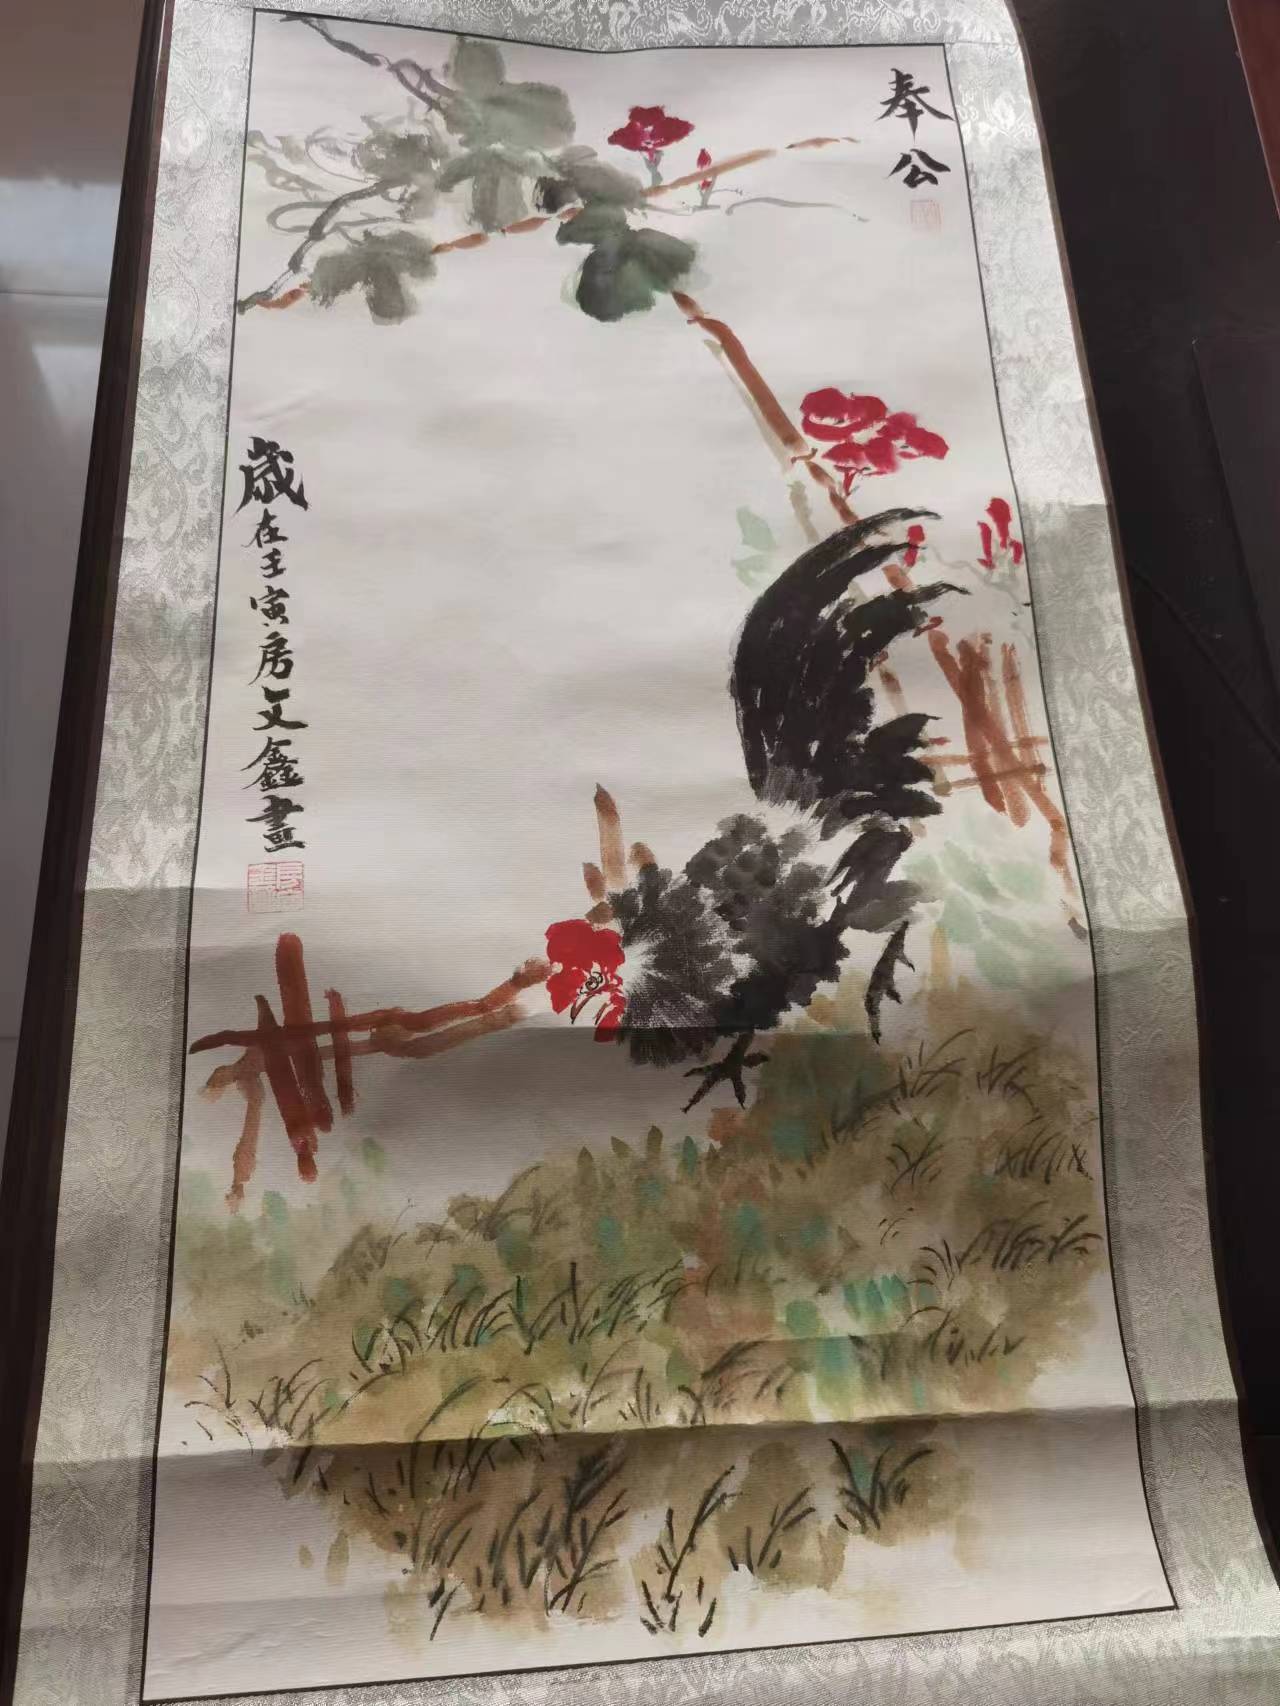 奉公
歳在壬寅房文鑫畫